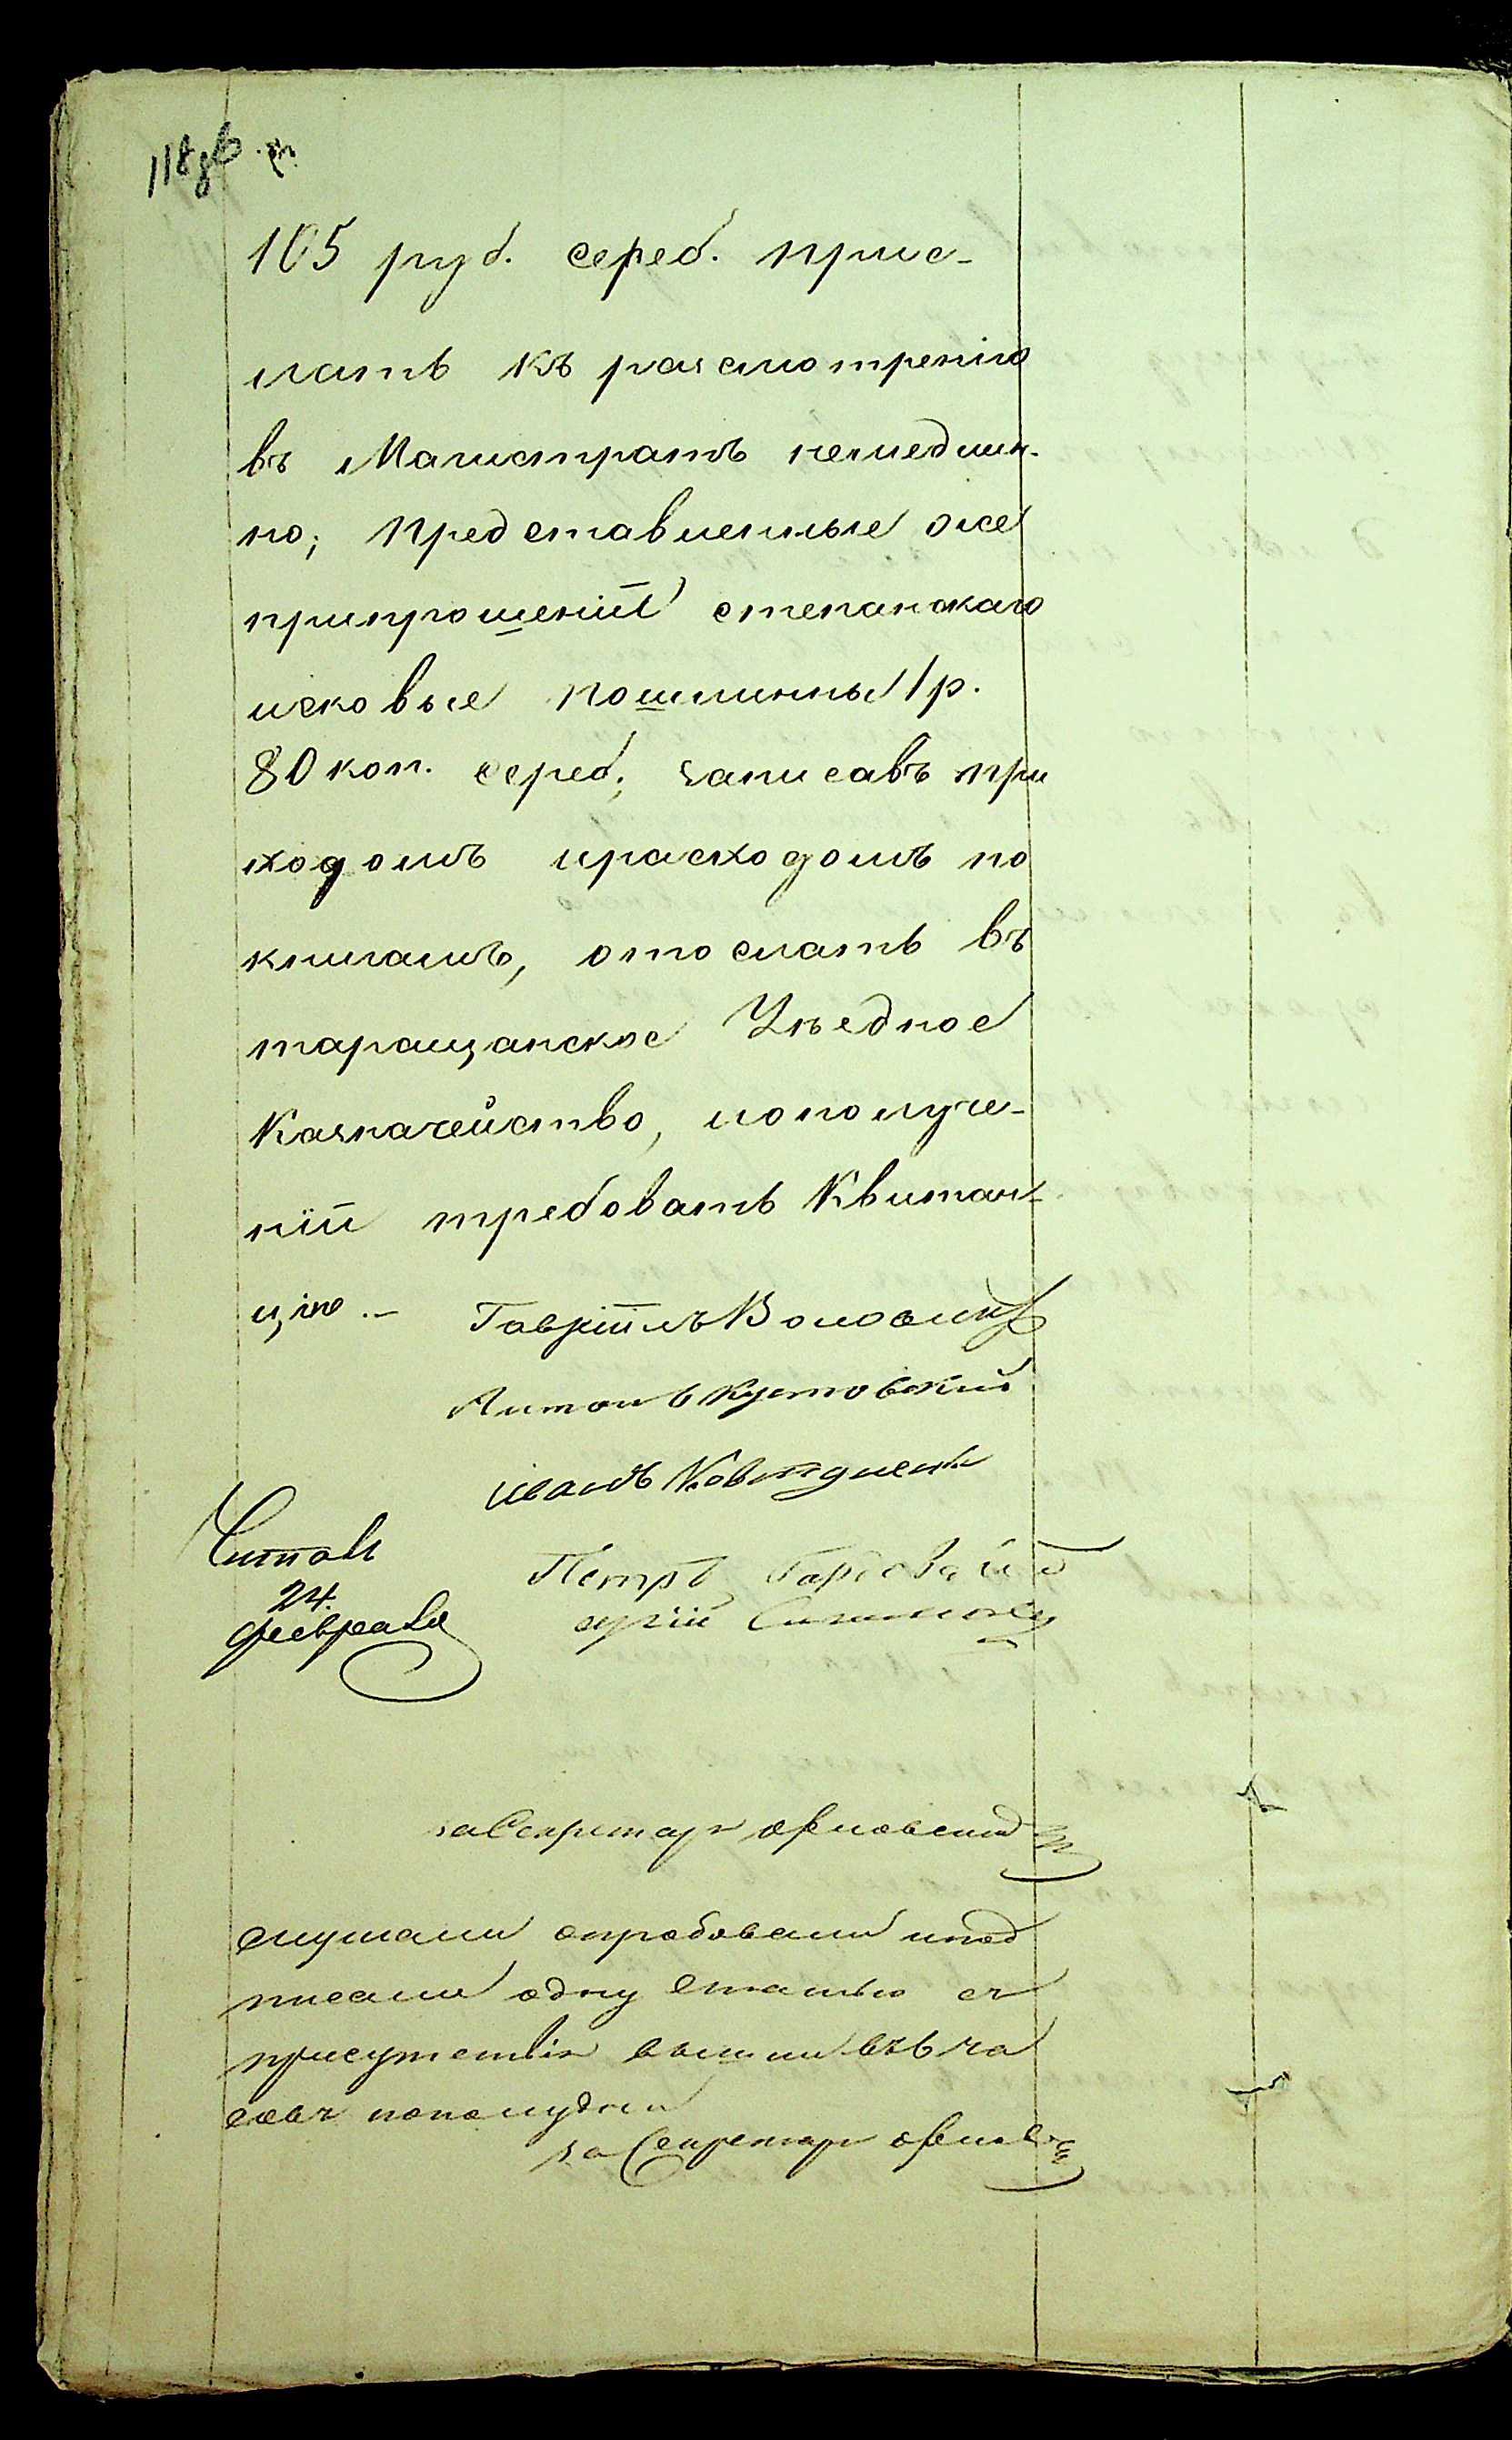 105 руб. сереб. прис-
лать къ разсмотренію
въ Магистратъ немедлен-
но; представленные же
припрошеніи степанскаго
исковые пошлинны 1 р.
80 коп. сереб; записавъ при
ходомъ ирасходомъ по
книгамъ, отослать въ
таращанское Уѣздное
Казначейство, иополуче-
ніи требовать Квитан-
цію.-
Гавріилъ
Антонъ Кутовскій
иванъ
Читалъ
24.
февраля
Петръ
заСекретаря
слушали опробовали ипод
писали одну статью съ
присутствія вышли въ
совъ пополудни
за Секретаря